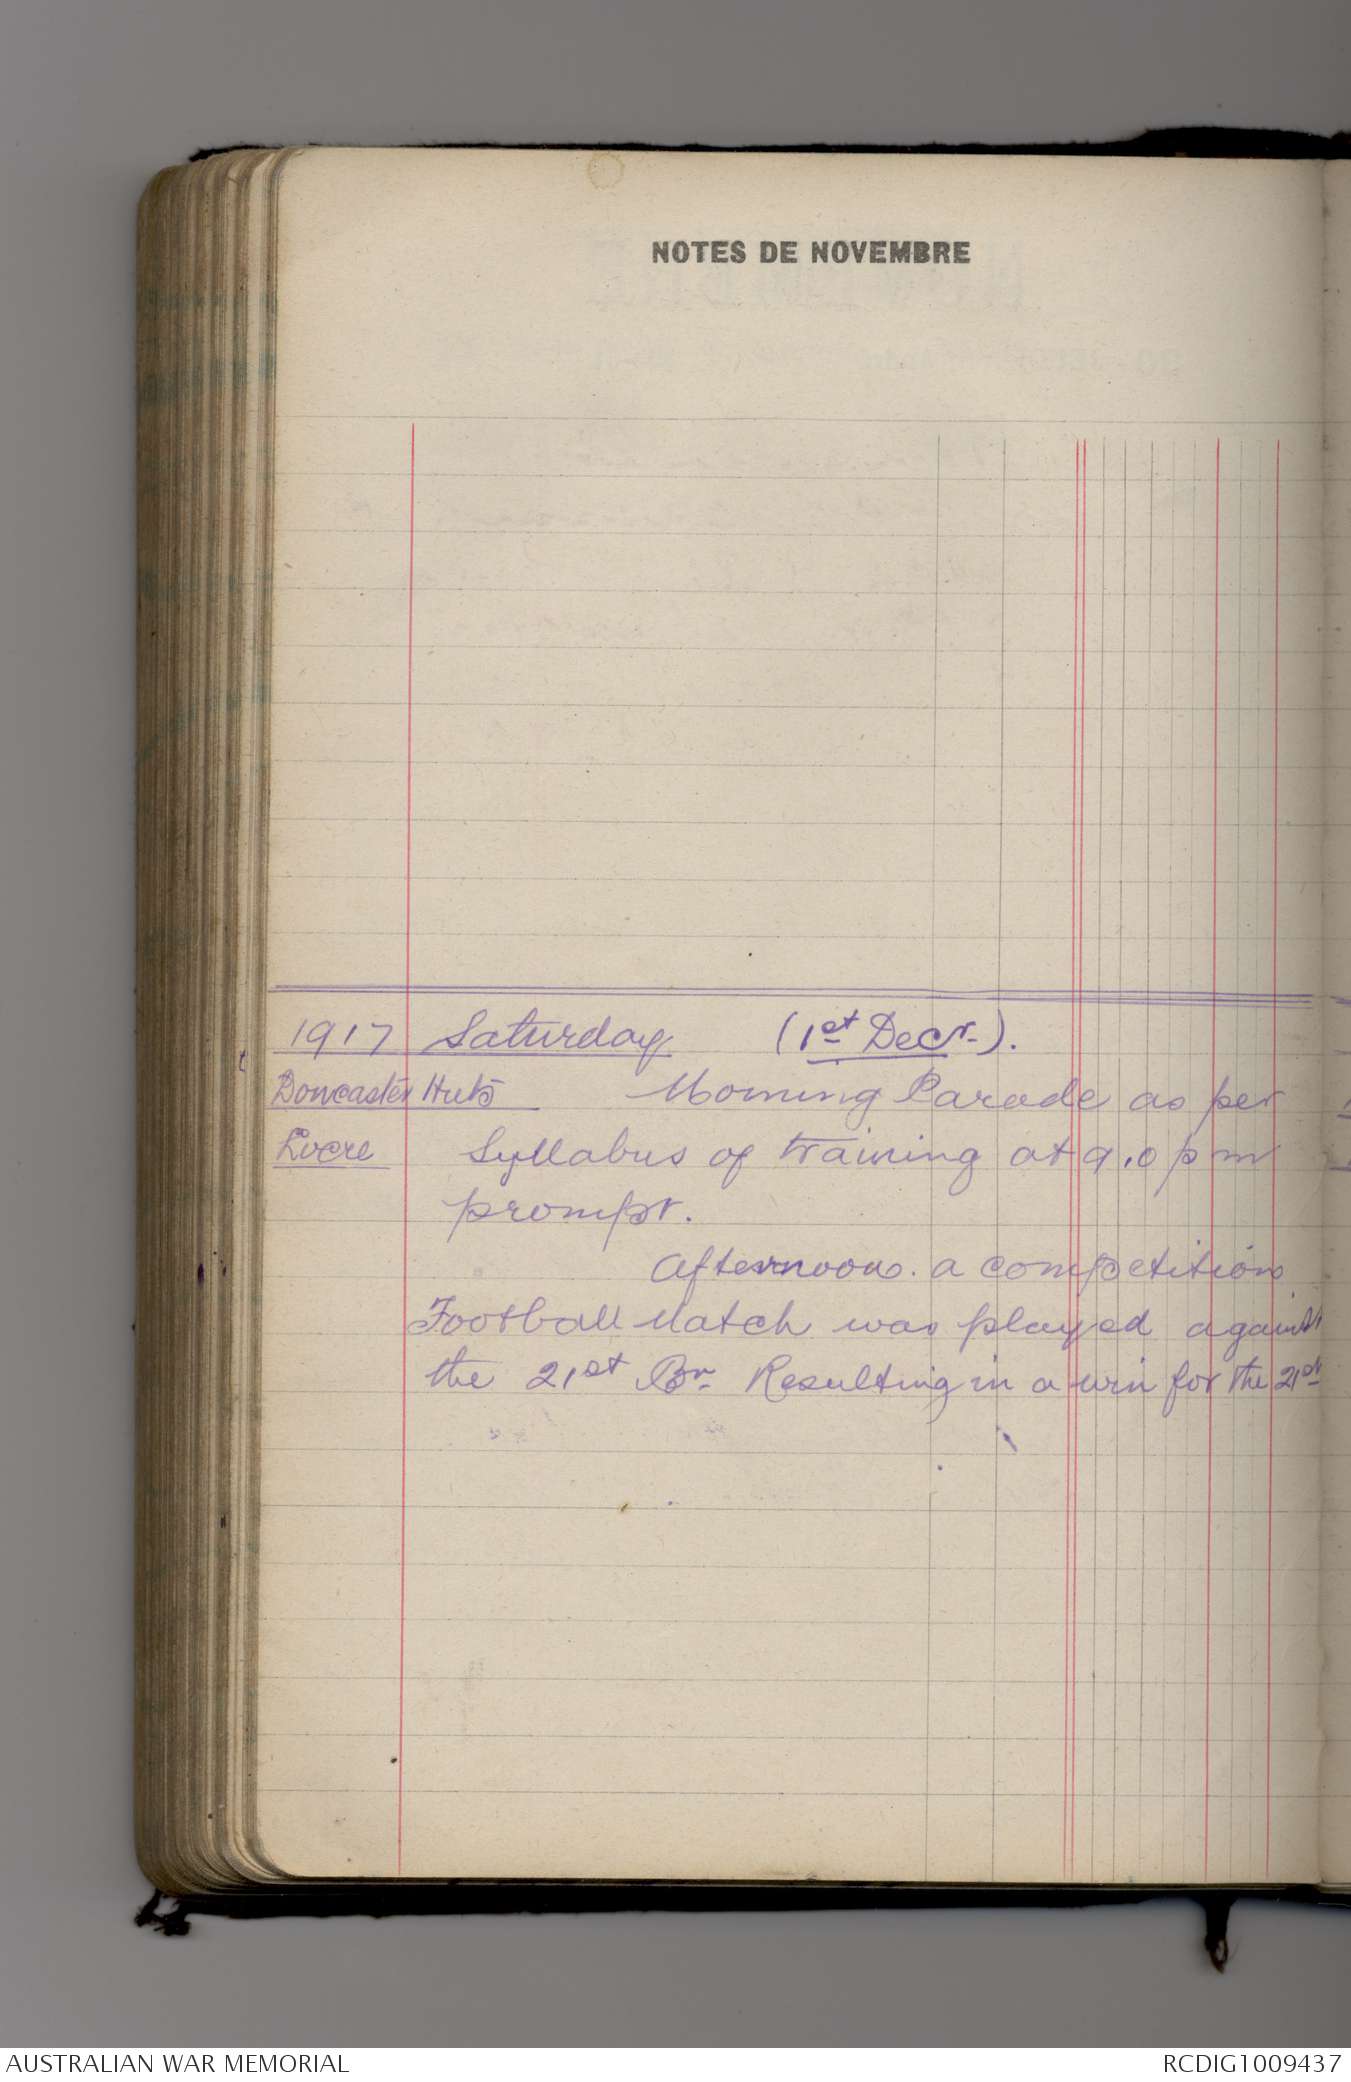 NOTES DE NOVEMBRE
1917 Saturday (1st Decr.).
Doncaster Huts Morning Parade as per
Locre Syllabus of training at 9.0 pm
prompt.
Afternoon. a competition
Football Match was played against
the 21st Bn. Resulting in a win for the 21st
AUSTRALIAN WAR MEMORIAL
RCDIG1009437